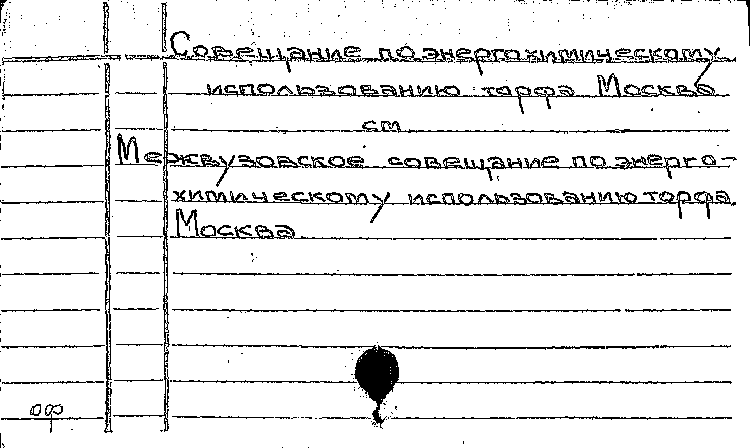 Совещание по энергохимическому
использованию торфа Москва
см
Межвузовское совещание по энерго-
химическому использованию торфа
Москва